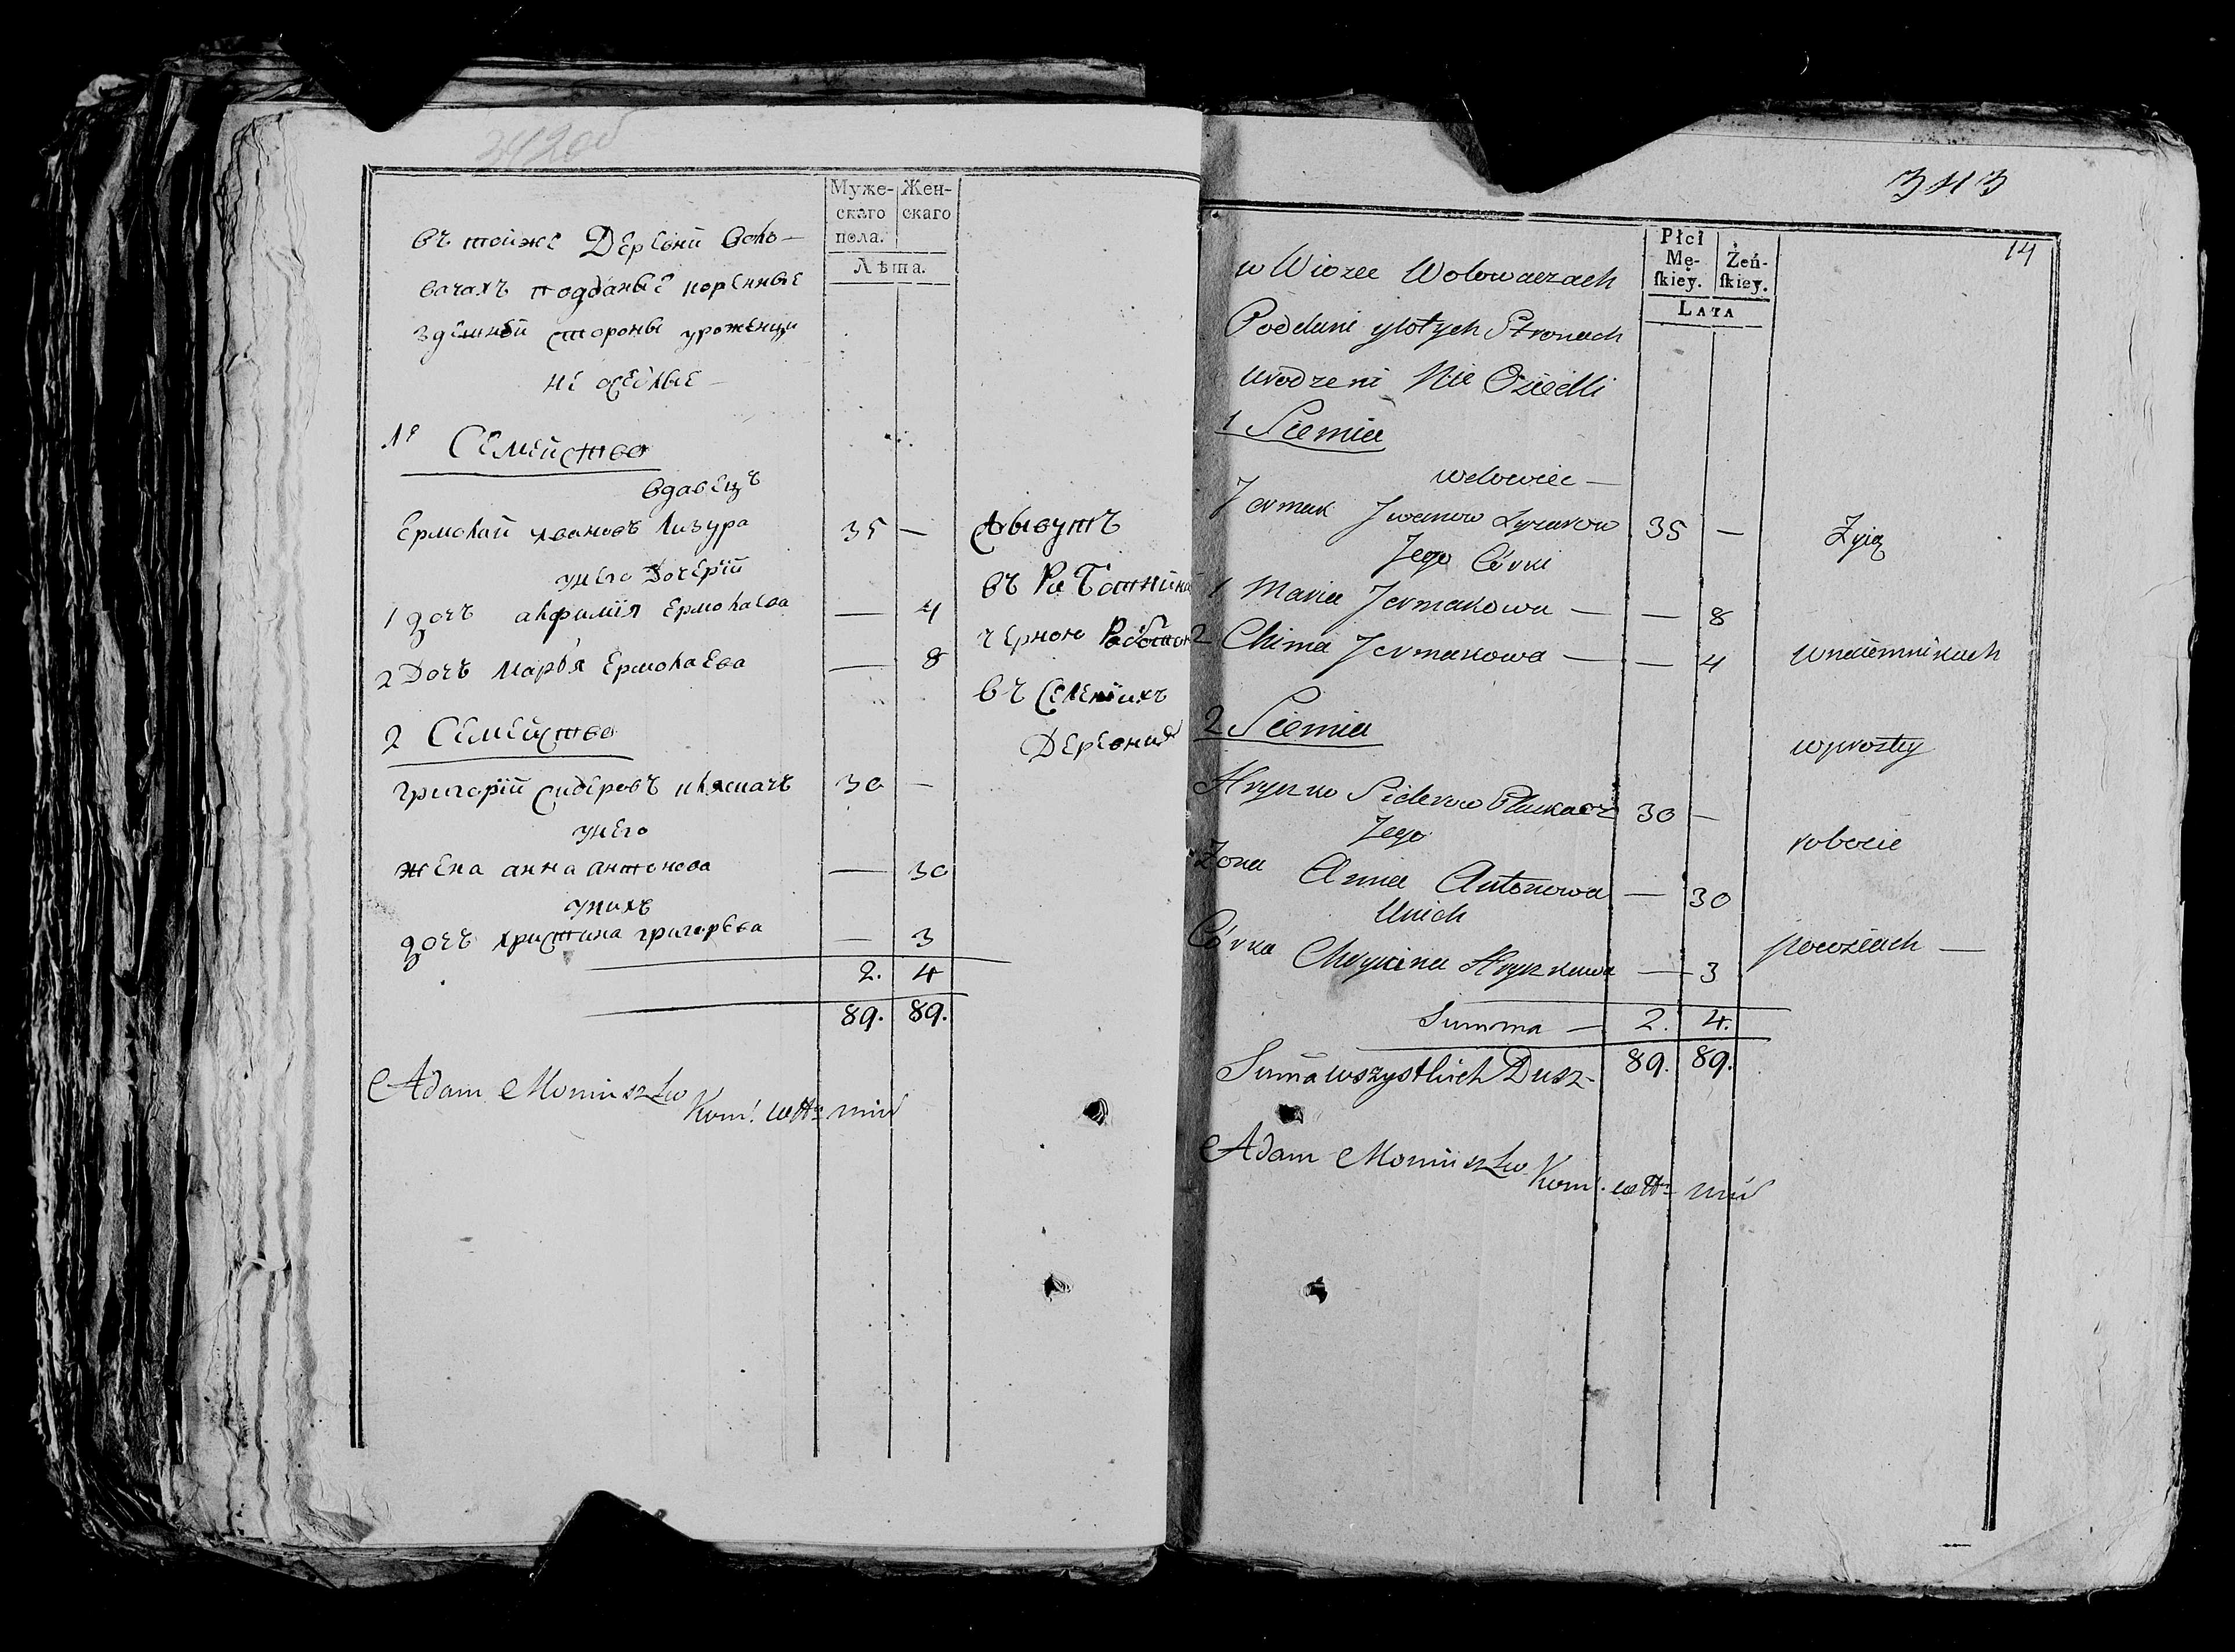 342об
Муже- Жен-
скаго скаго
пола.
Лѣта.
въ тойже Деревни Воло-
вачахъ подданые коренные
здешней стороны уроженцы
не оселые
1е Семейство
вдавецъ
Ермолай Ивановъ Лизура 35 —
унего дочерїи
1 дочь Акфимїя Ермолаева — 4
2 Дочь Марья Ермолаева — 8
2 Семейство
Григорїй Сидоровъ Плкачъ 30 —
унего
жена анна антонова — 30
унихъ
дочь христина григорьева — 3
2. 4
89. 89.
живутъ
въ
черною Работою
въ Селенїихъ
Деревния
Adam Moniuszko
Kom:
343
14
Płci
Mę- Żeń-
skiey. skiey.
Lata
w Wiozce Wolowaczach
Poddani ywtych Stronach
urodzeni Nie Osiedli
1 Siemia
wdowiec —
Jermak Jwanow Lyzurow 35 —
Jego Córki
1 Maria Jermakowa — — 8
2 Chima Jermakowa — — 4
2 Siemia
Hryszko Siderow Plaskacz 30 —
Jego
Żona Anna Antonowa — 30
Unich
Córka Chrycina Hryszkowa — 3
Summa — 2. 4.
Suma wszystkich Dusz - 89. 89.
Żyią
wnaiemnikach
wprostey
robocie
powsiach —
Adam Moniuszko
Kom: